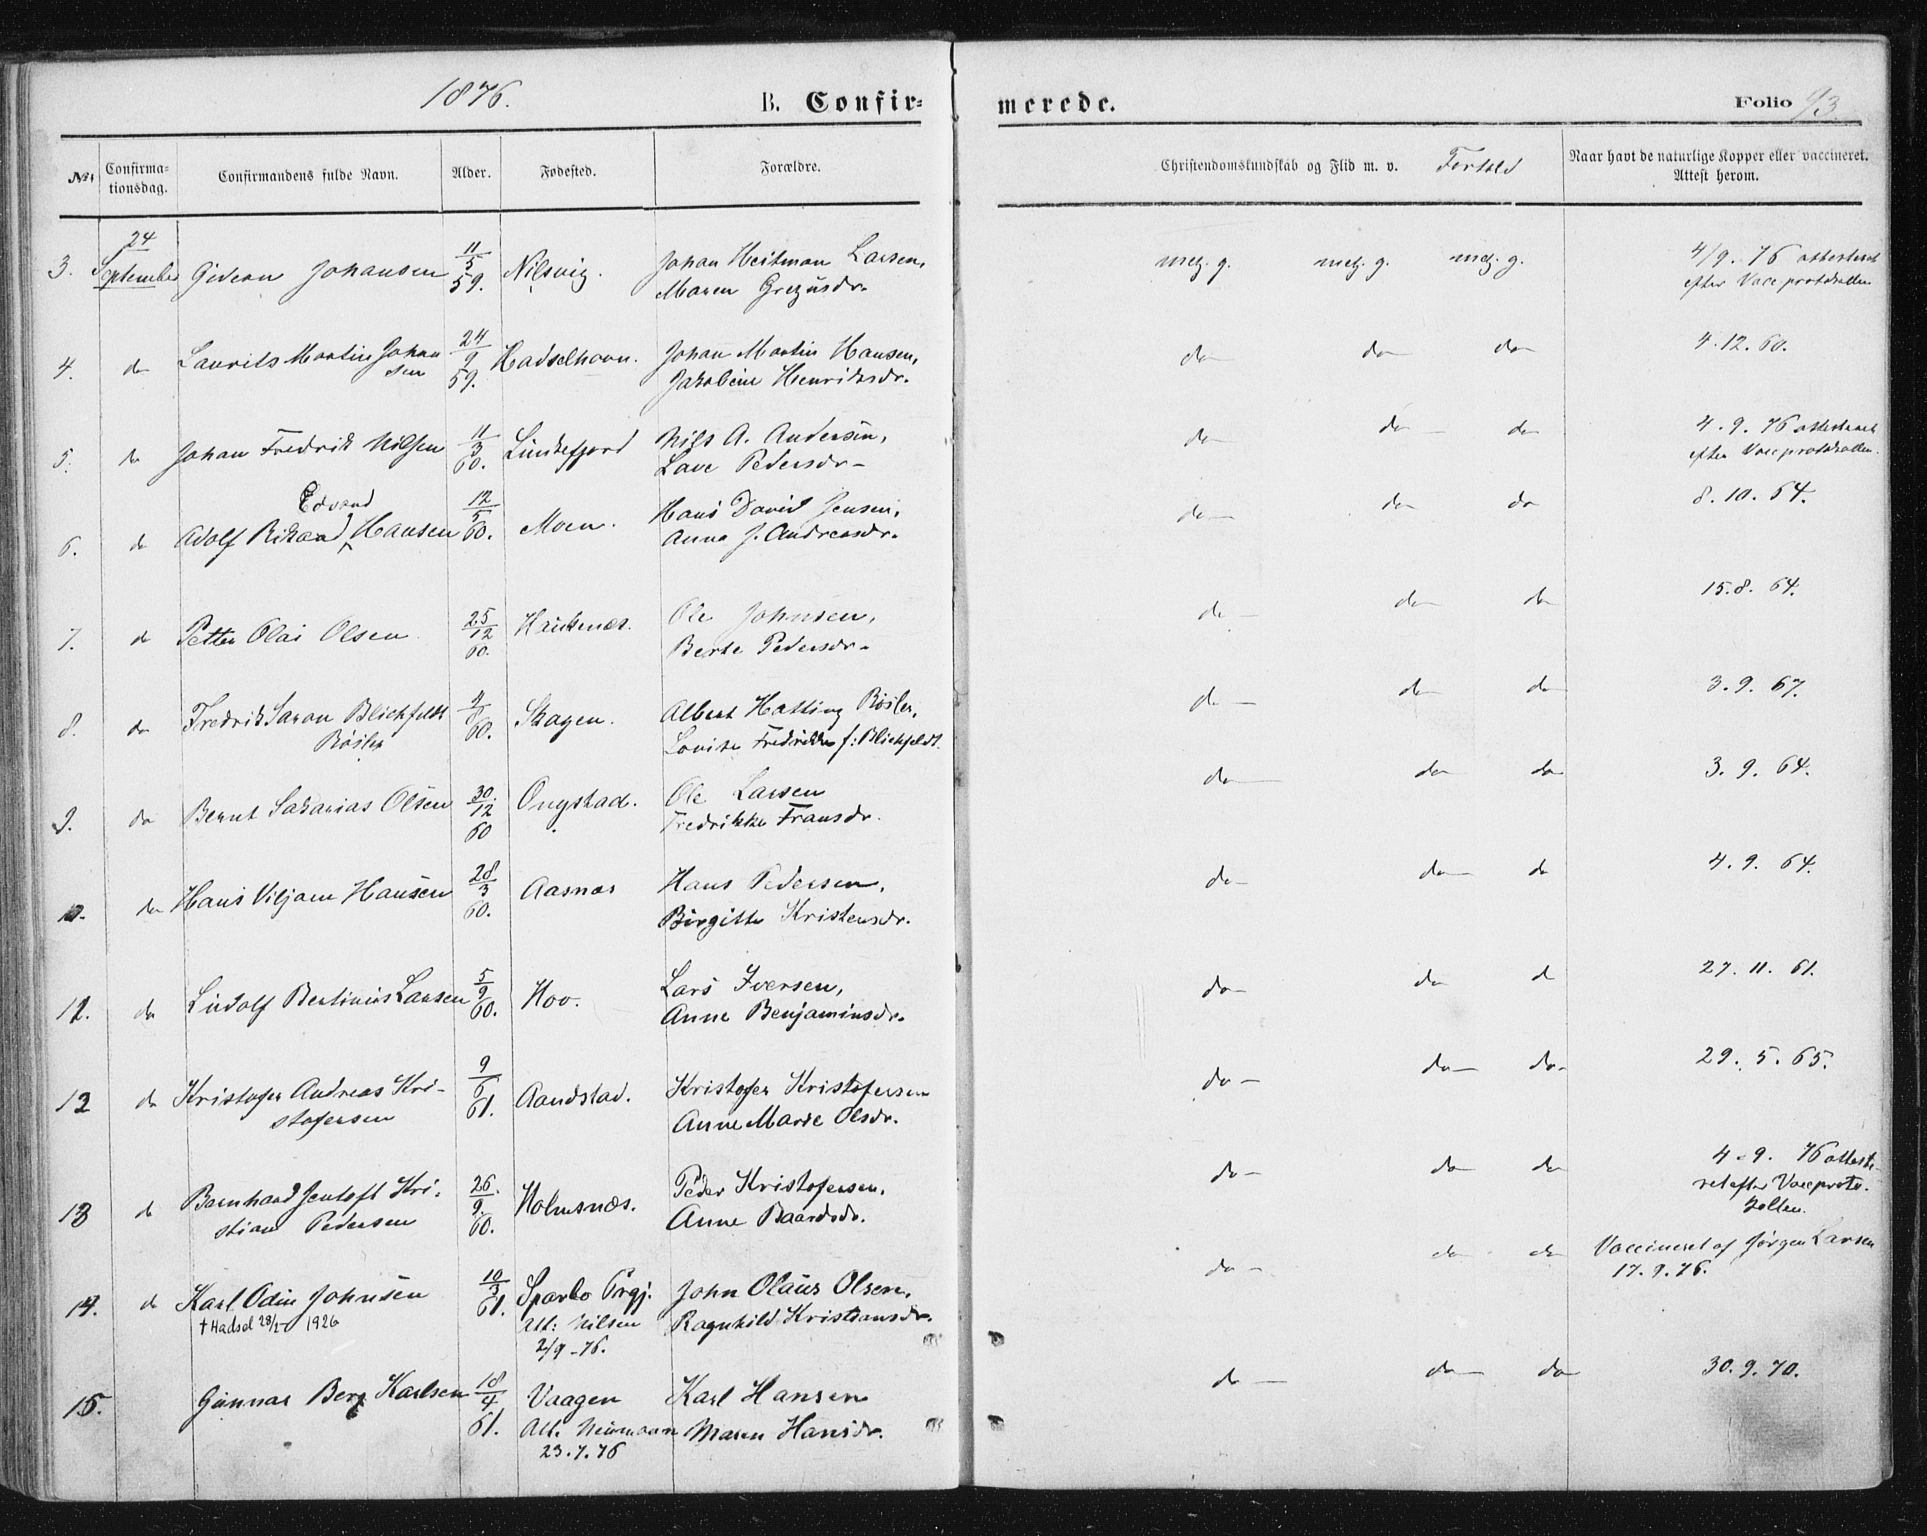 1876.
B. Confir-
merede.
Folio 93.
No.
Confirma-
tionsdag.
Confirmandens fulde Navn.
Alder.
Fødested.
Forældre.
Christendomskundskab og Flid m. v. Forhold
Naar havt de naturlige Kopper eller vaccineret.
Attest herom.
3. 24 September Gideon Johansen 11/5 59. Nilsvig. Johan Heitman Larsen, meg. g. meg. g. meg. g. 4/9. 76 attesteret
Maren Gregusdr. efter Vacc protokollen
4. do Laurits Martin Johan 24/9 59. Hadselhavn. Johan Martin Hansen, do do do 4.12.60.
sen Jakobine Henriksdr.
5. do Johan Fredrik Nilsen 11/3 60. Finkefjord Nils A. Andersen, do do do 4.9.76 attesteret
Lave Pedersdr. efter Vacc protokollen.
Edvard
6. do Adolf Rikard Hansen 12/5 60. Moen. Hans David Jensen, do do do 8.10.64.
Anna J. Andreasdr.
7. do Petter Olai Olsen 25/12 60. Haukenæs. Ole Johnsen, do do do 15.8.64.
Berte Pedersdr.
8. do Fredrik Saron Blichfeldt 4/8 60. Skagen. Albert Hatting Røsler, do do do 3.9.67.
Røsler Lovise Fredrikke f: Blichfeldt.
9. do Bernt Sakarias Olsen 30/12 60 Ongstad. Ole Larsen do do do 3.9.64.
Fredrikke Fransdr.
10. do Hans Viljam Hansen 28/3 60. Aasnæs Hans Pedersen, do do do 4.9.64.
Birgitte Kristensdr.
11. do Ludolf Bertinius Larsen 5/9 60. Hov. Lars Iversen, do do d 27.11.61.
Anne Benjaminsdr.
12 do Kristofer Andreas Kri- 9/6 61. Aandstad. Kristofer Kristofersen do do do 29.5.65.
stofersen Anne Marie Olsdr.
13 do Barnhard Jentoft Kri- 26/9. 60. Holmsnæs. Peder Kristofersen, do do do 4.9. 76 atteste-
stian Pedersen Anne Baardsdr. ret efter Vacc proto-
kollen.
14. do Karl Odin Johnsen 10/3 61. Sparbo Prgj. John Olaus Olsen, do do do Vaccineret af Jørgen Larsen
17.9.76.
† Hadsel 28/2 1926 Att: Nilsen Ragnhild Kristiansdr.
2/9-76.
15. Gunnar Berg Karlsen 18/4 61. Vaagen Karl Hansen do do do 30.9.70.
Att. Neumann Maren Hansdr.
23.7.76